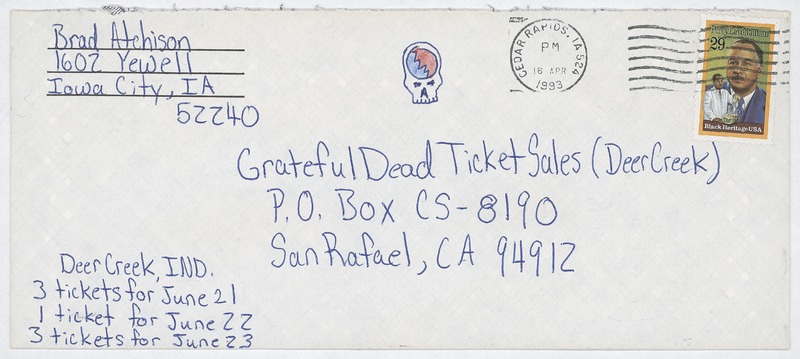 Brad Atchison
1602 Yewell
Iowa City, IA
52240
CEDAR RAPIDS, IA 524
PM
16 APR
1993
29
Black Heritage USA
Grateful Dead Ticket Sales (Deer Creek)
P.O. Box CS-8190
San Rafael, CA 94912
Deer Creek, IND.
3 tickets for June 21
1 ticket for June 22
3 tickets for June 23